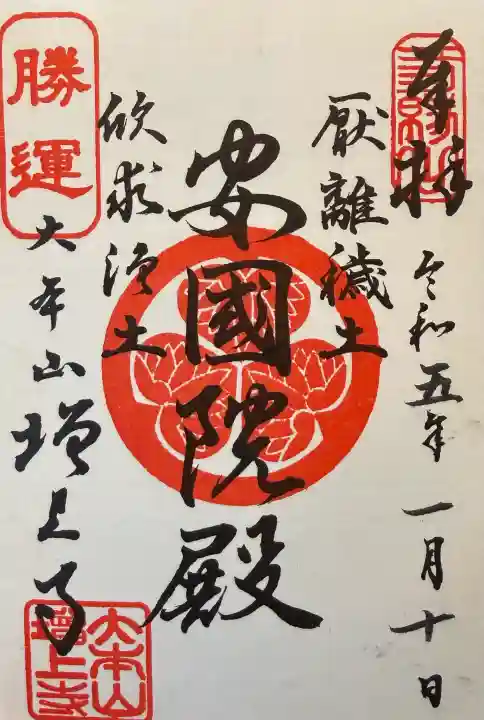 奉拝
三縁山
令和五年一月十日
厭離穢土
安國院殿
欣求浄土
勝運
大本山増上寺
大本山
増上寺